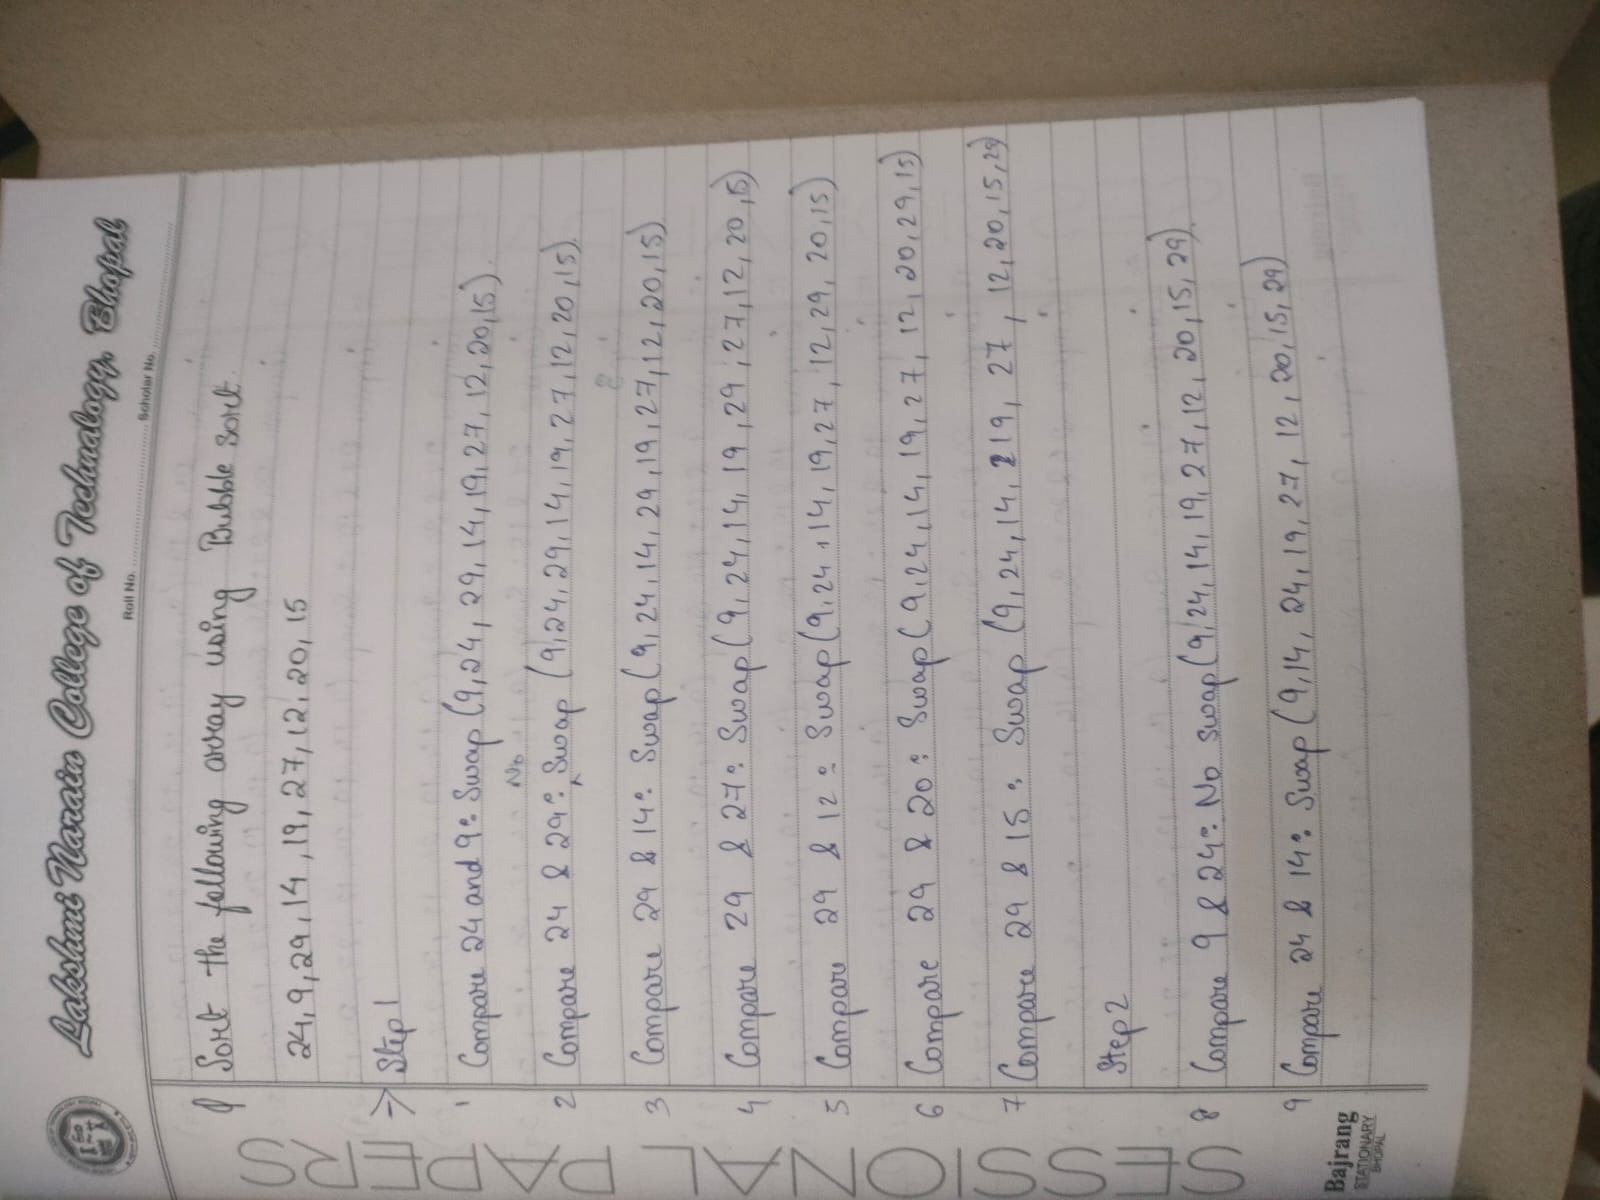 Lakshmi Narain College of Technology, Bhopal
Roll No. Scholar No.
SESSIONAL PAPERS
Q Sort the following array using Bubble sort.
24, 9, 29, 14, 19, 27, 12, 20, 15
=> Step 1
1 Compare 24 and 9: Swap (9, 24, 29, 14, 19, 27, 12, 20, 15).
No
2 Compare 24 & 29: ^ Swap (9, 24, 29, 14, 19, 27, 12, 20, 15).
3 Compare 29 & 14: Swap (9, 24, 14, 29, 19, 27, 12, 20, 15)
4 Compare 29 & 27: Swap (9, 24, 14, 19, 29, 27, 12, 20, 15)
5 Compare 29 & 12: Swap (9, 24, 14, 19, 27, 12, 29, 20, 15)
6 Compare 29 & 20: Swap (9, 24, 14, 19, 27, 12, 20, 29, 15)
7 Compare 29 & 15: Swap (9, 24, 14, 19, 27, 12, 20, 15, 29)
Step 2
8 Compare 9 & 24: No swap (9, 24, 14, 19, 27, 12, 20, 15, 29)
9 Compare 24 & 14: Swap (9, 14, 24, 19, 27, 12, 20, 15, 29)
Bajrang
STATIONARY
BHOPAL